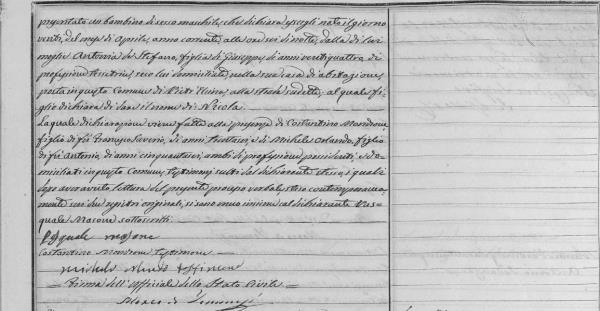 presentato un bambino di sesso maschile, che dichiara essergli nato il giorno
venti, del mese di Aprile, anno corrente, alle ore sei di notte, dalla di lui
moglie Antonia de Stefano, figlia di Giuseppe, di anni ventiquattro, di
professione tessitrice, seco lui domiciliata, nella sua casa di abitazione,
posta in questo Comune di alla strada suddetta; al quale fi
glio dichiara di dare il nome di Nicola.
La quale dichiarazione viene fatta alla presenza di Costantino Mondrone
figlio di fu Francesco Saverio, di anni e di Michele Orlando, figlio
di fu Antonio, di anni cinquantasei, ambi di professione possidenti, e do
miciliati in questo Comune, testimoni scelti dal dichiarante stesso; i quali
dopo aver avuto lettura del presente processo verbale, steso contemporanea
mente sui due registri originali, si sono meco insieme col dichiarante Pas
quale Masone sottoscritti.
Pasquale masone
Costantino Mondrone testimone
michele
Firma dell'Officiale dello Stato Civile
Marco de